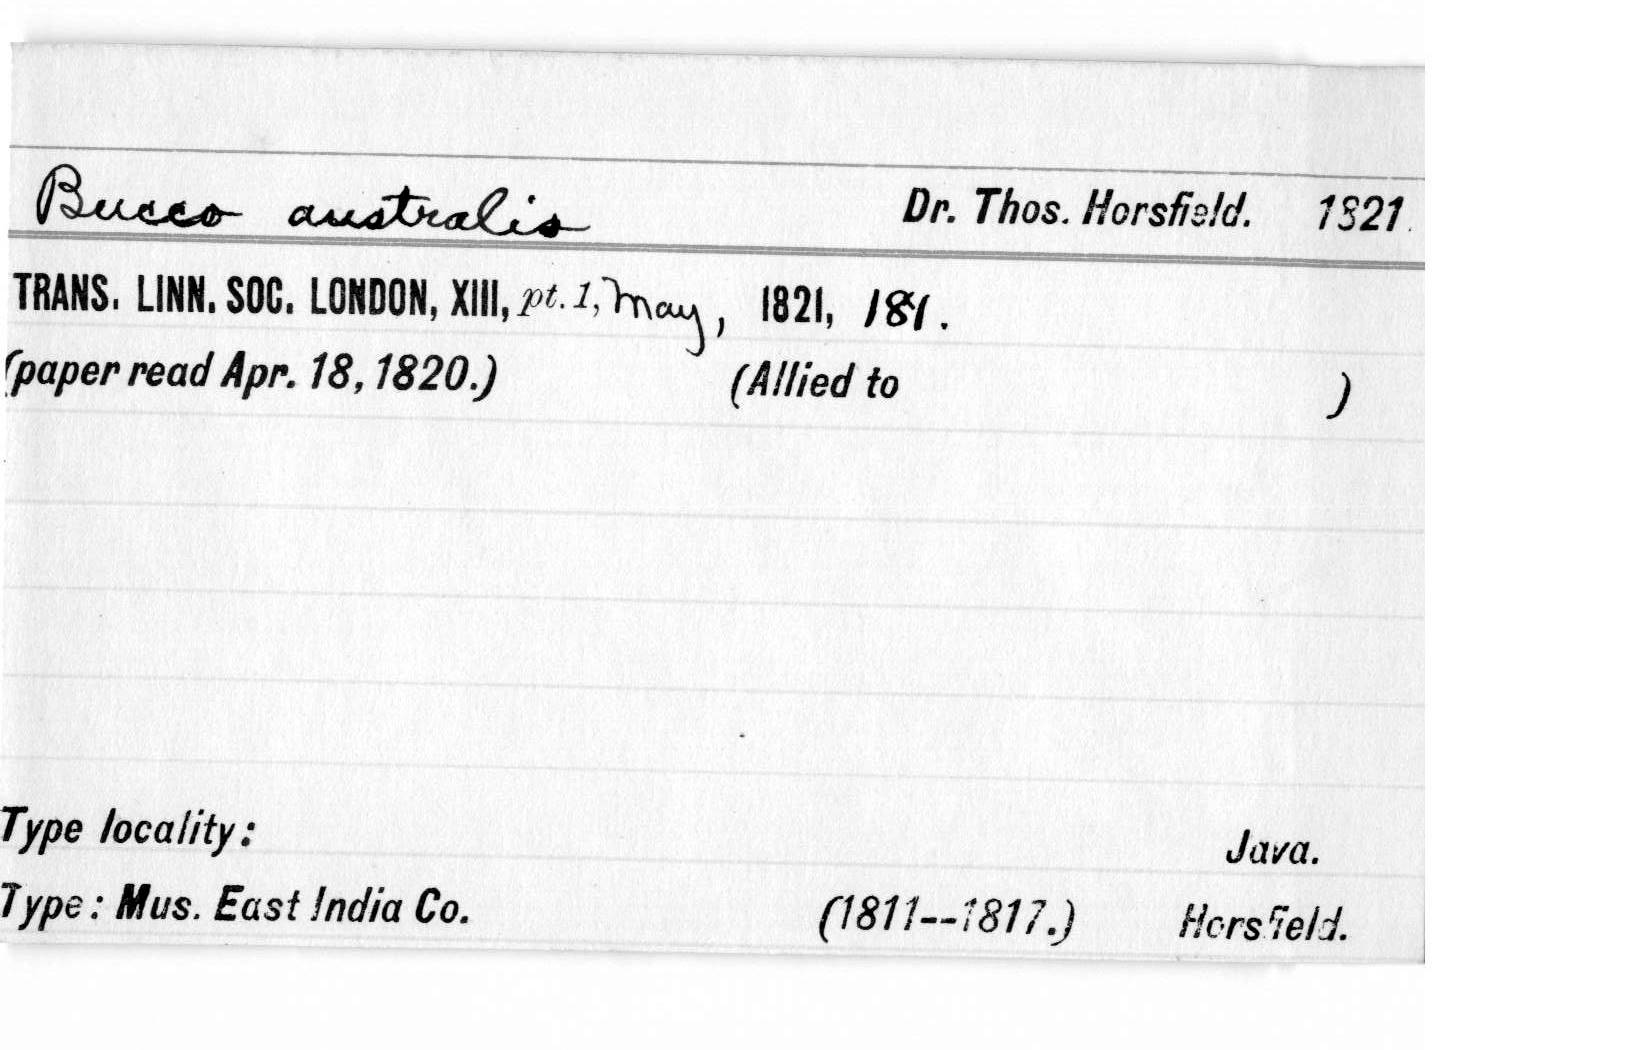 Bucco australis Dr. Thos. Horsfield. 1821.
TRANS. LINN. SOC. LONDON, XIII, pt. 1, May, 1821, 181.
(paper read Apr. 18, 1820.) (Allied to )
Type locality: Java.
Type: Mus. East India Co. (1811--1817.) Horsfield.